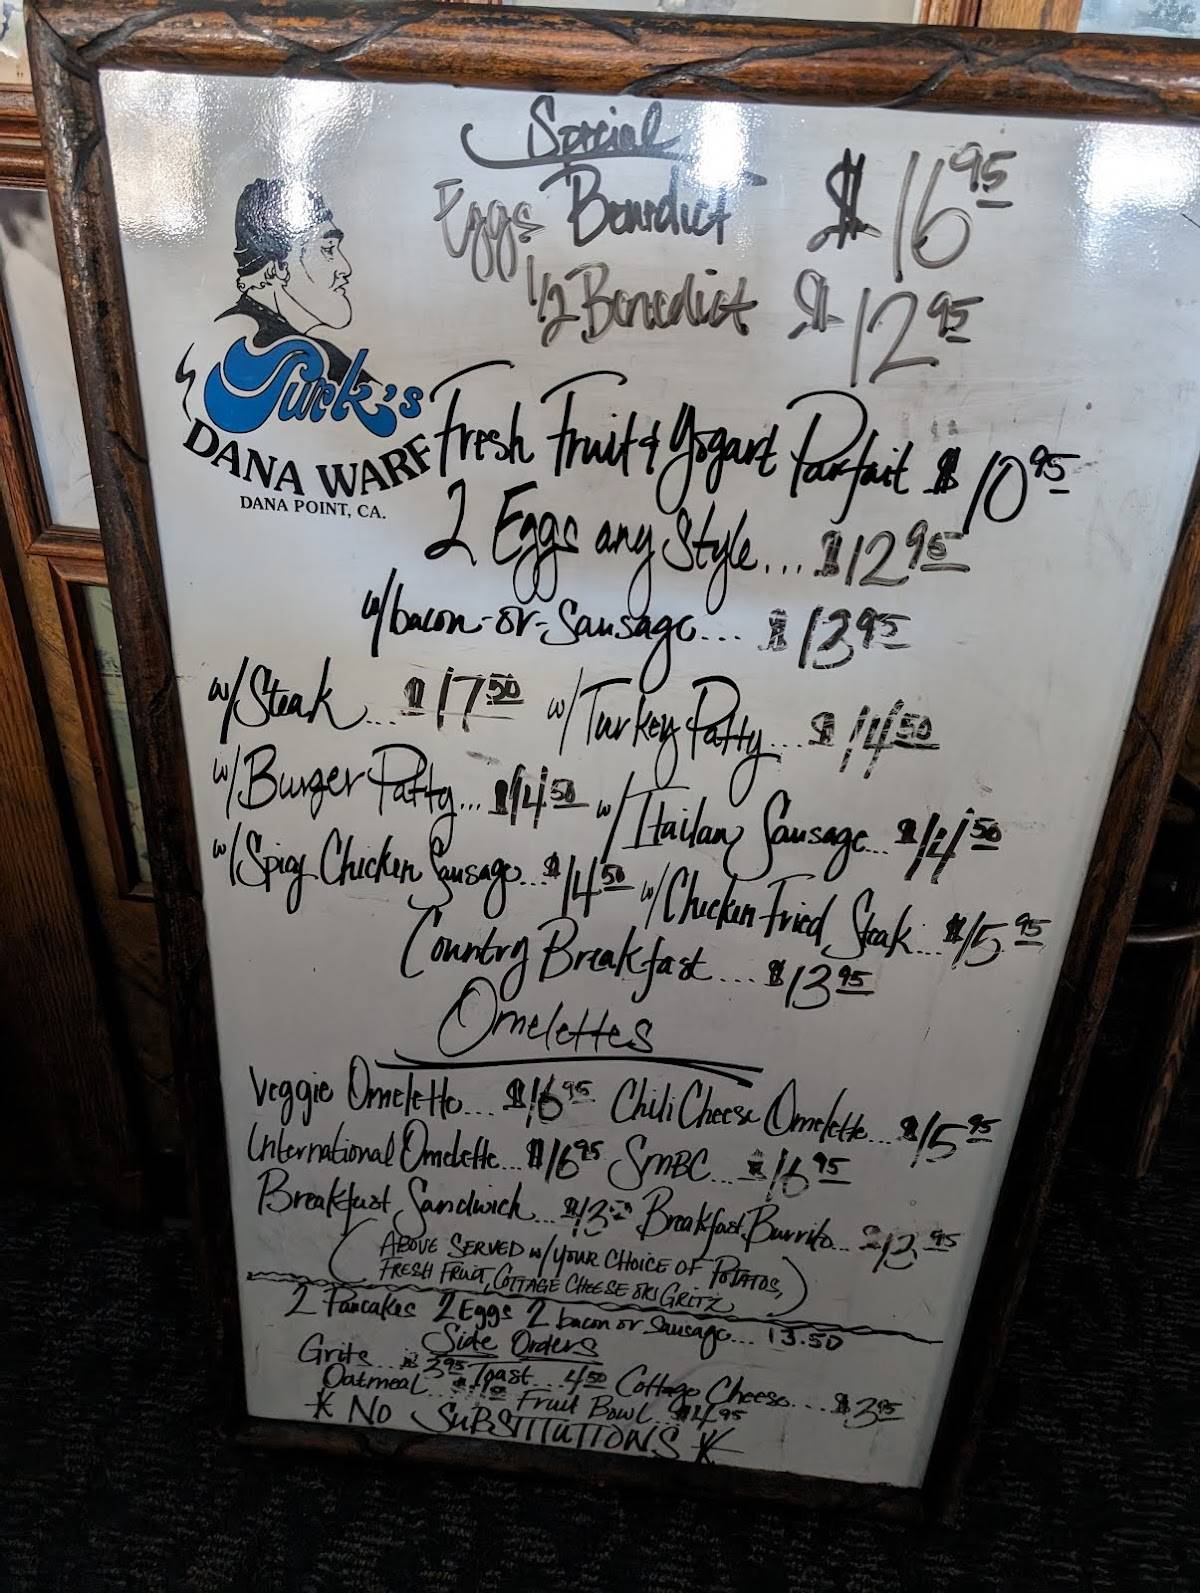 Special
Eggs Benedict $16.95
1/2 Benedict $12.95
Turk's
DANA WARF
DANA POINT, CA.
Fresh Fruit & Yogart Parfait $10.95
2 Eggs any Style... $12.95
w/bacon-or-Sausage... $13.95
w/Steak... $17.50 w/Turkey Patty... $14.50
w/Burger Patty... $14.50 w/Itailan Sausage... $14.50
w/Spicy Chicken Sausage... $14.50 w/Chicken Fried Steak... $15.95
Country Breakfast... $13.95
Omelettes
Veggie Omelette... $16.95 Chili Cheese Omelette... $15.95
International Omelette... $16.95 SMBC... $16.95
Breakfast Sandwich... Breakfast Burrito...
(ABOVE SERVED w/YOUR CHOICE OF POTATOS,
FRESH FRUIT, COTTAGE CHEESE OR GRITZ)
2 Pancakes 2 Eggs 2 bacon or Sausage... 13.50
Side Orders
Grits... $3.95 Toast... 4.50 Cottage Cheese... $3.95
Oatmeal... Fruit Bowl... $4.95
* NO SUBSTITUTIONS *